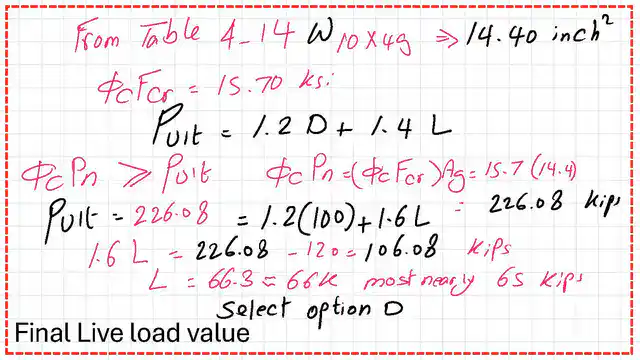 From Table 4-14 W10x49 ⇒ 14.40 inch²
ϕcFcr = 15.70 ksi
Pult = 1.2 D + 1.4 L
ϕcPn ⩾ Pult ϕcPn = (ϕcFcr)Ag = 15.7 (14.4)
Pult = 226.08 = 1.2(100) + 1.6 L = 226.08 kips
1.6 L = 226.08 - 120 = 106.08 kips
L = 66.3 = 66k most nearly 65 kips
Select option D
Final Live load value